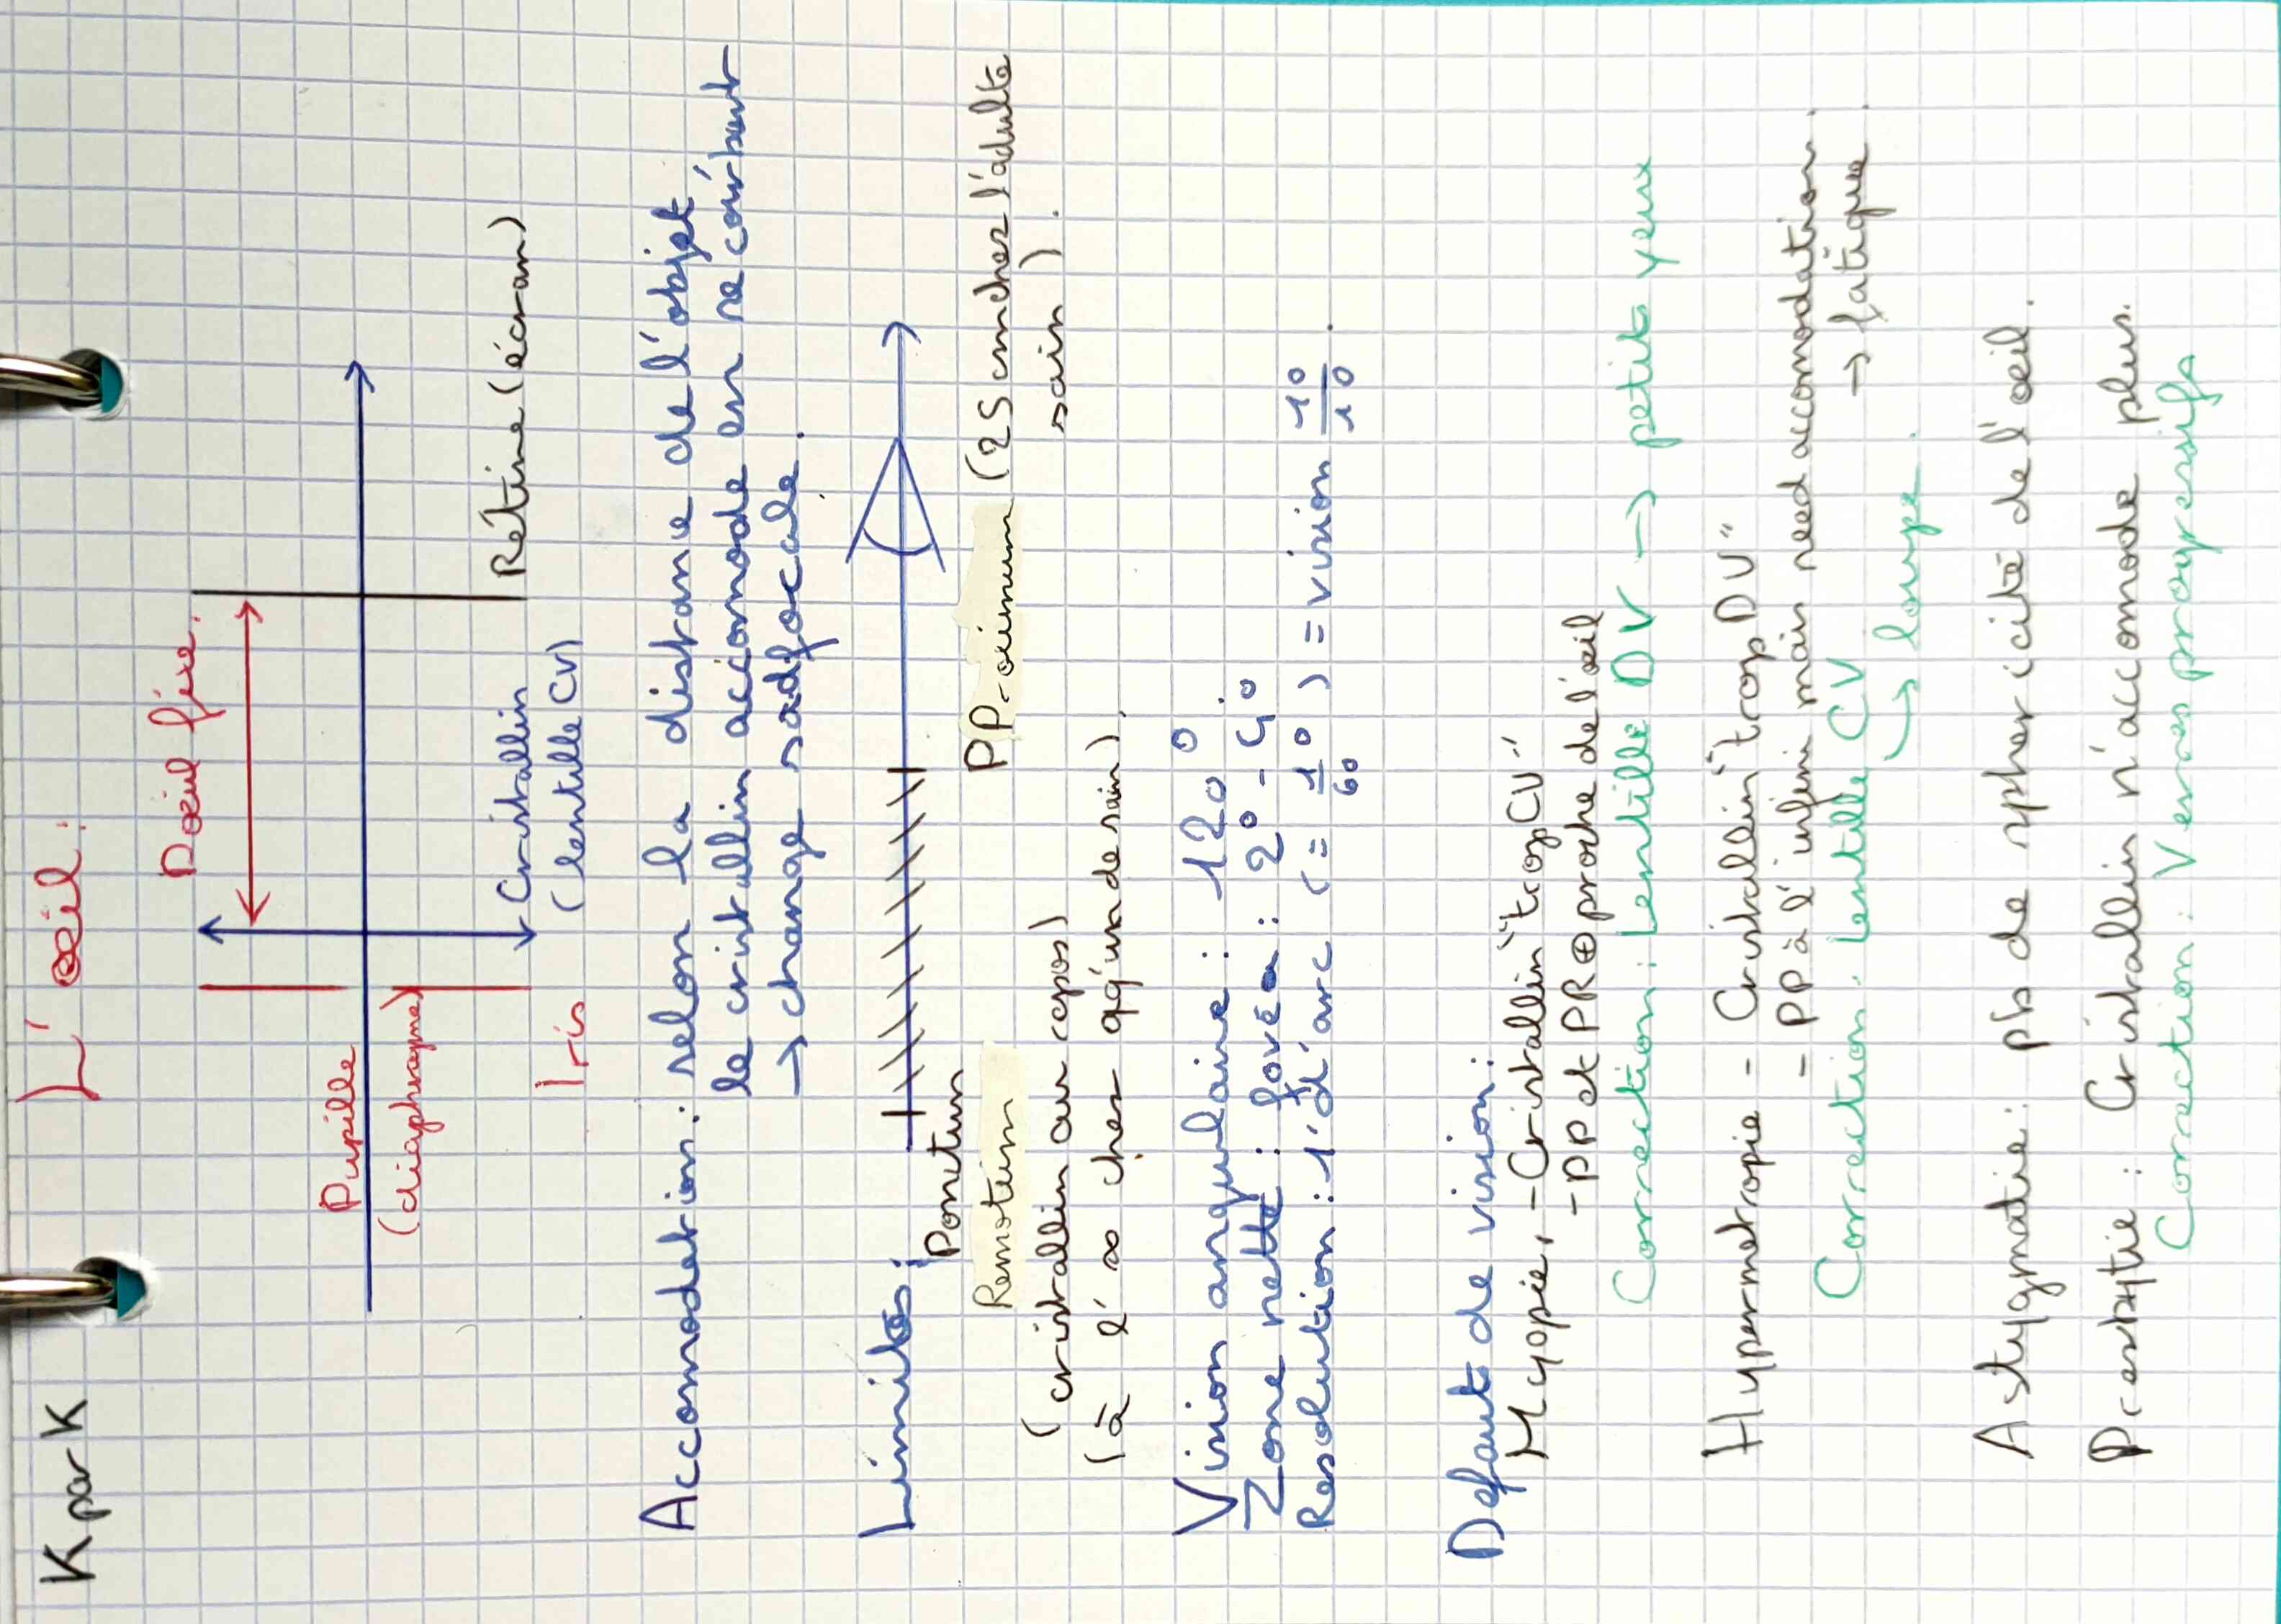 K par K
L'œil:
Dœil fixe.
Pupille
(diaphragme)
Iris
Cristallin
(lentille CV)
Rétine (écran)
Accomodation: selon la distance de l'objet
le cristallin accomode en se courbant
→ change sa dfocale.
Limites:
Ponctum
Remotum
(cristallin au repos)
(à l'∞ chez qq'un de sain)
PProximum (25 cm chez l'adulte
sain).
Vision angulaire: 120°
Zone nette: fovéa: 2°-4°
Resolution: 1' d'arc (= 1°/60) = vision 10/10.
Defaut de vision:
Myopie, - Cristallin "trop CV"
- PP et PR ⊕ proche de l'œil
Correction: Lentille DV → petits yeux
Hypermetropie - Cristallin "trop DV"
- PP à l'infini mais need accomodation.
→ fatigue.
Correction: lentille CV
→ loupe.
Astygmatie: pb de sphericité de l'œil.
Presbytie: Cristallin n'accomode plus.
Correction: Verres progressifs